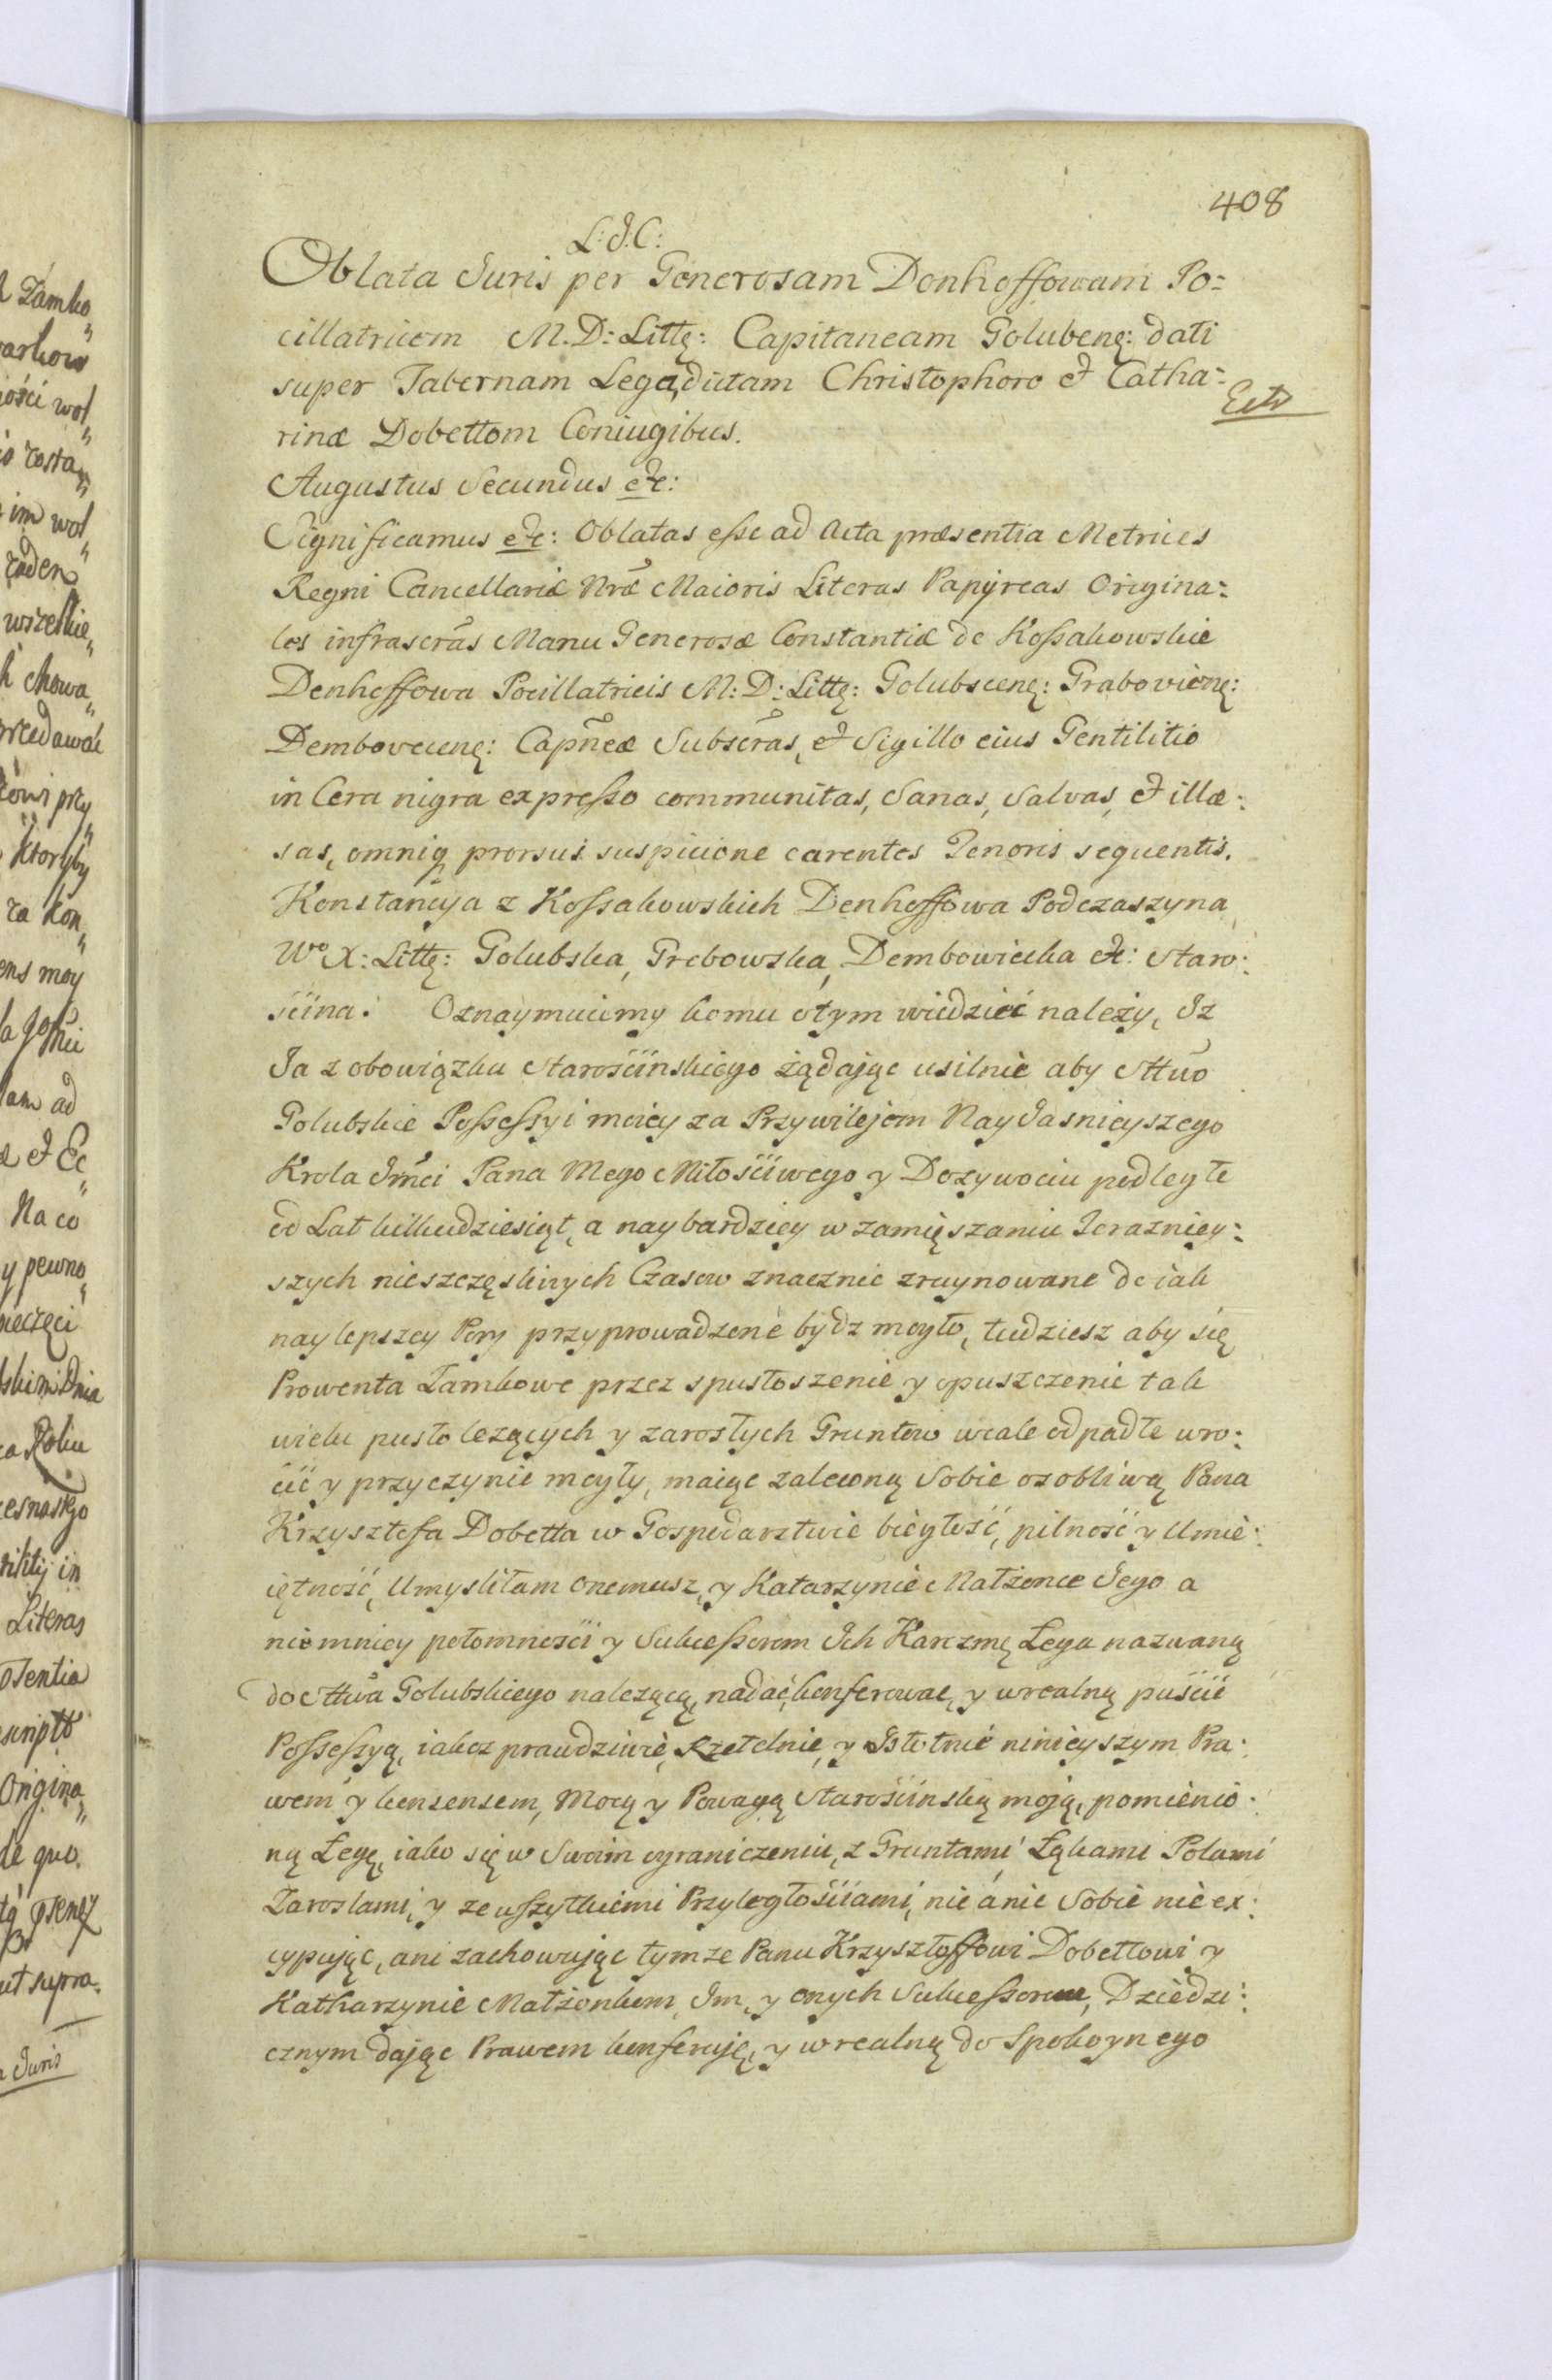 408
L: J. C:
Oblata Juris per Generosam Donhoffowam Po=
cillatricem M. D: Littę: Capitaneam Golubenę: dati
super Tabernam Lega, dictam Christophoro et Catha=
Ectr
rinæ Dobettom Coniugibus.
Augustus Secundus etc:
Significamus etc: Oblatas esse ad Acta præsentia Metrices
Regni Cancellariæ Nræ Maioris Literas Papyreas Origina=
les infrascras Manu Generosæ Constantiæ de Kossakowskie
Denhoffowa Pocillatricis M: D: Littę: Golubscenę: Grabovienę:
Dembovecenę: Capneæ Subscras, et Sigillo eius Gentilitio
in Cera nigra expresso communitas, Sanas, Salvas, et illæ=
sas, omniq prorsus suspicione carentes Tenoris sequentis.
Konstancya z Kossakowskich Denhoffowa Podczaszyna
Wo X: Littę: Golubska, Grebowska, Dembowiecka etc: Staro=
scina. Oznaymuiemy komu otym wiedzieć należy, Iz
Ja z obowiązku Staroscinskiego żądaiąc usilnie aby Sttwo
Golubskie Possessyi moiey za Przywilejem Nay Jasnieyszego
Krola Jmci Pana Mego Miłosciwego y Dozywociu podległe
od Lat kilkudziesiąt, a naybardziey w zamięszaniu Terazniey=
szych nieszczęsliwych Czasow znacznie zruynowane do iak
naylepszey Pory przyprowadzone bydz mogło, tudziesz aby się
Prowenta Zamkowe przez spustoszenie y opuszczenie tak
wielu pusto lezących y zarosłych Gruntow wcale odpadłe wro=
cić y przyczynie mogły, maiąc zaleconą Sobie osobliwą Pana
Krzysztofa Dobetta w Gospodarztwie biegłość, pilność y Umie=
iętność, Umyslilam onemusz, y Katarzynie Małżonce Jego a
niemniey potomności y Sukcessorom Ich Karczmę Lega nazwaną
do Sttwa Golubskiego nalezącą, nadać, konferowac, y wrealną puście
Possessyą, iakoz prawdziwie, Rzetelnie, y Istotnie ninieyszym Pra=
wem y konsensem, Mocą y Powagą Staroscinską moją, pomienio=
ną Legę, iako się w Swoim ograniczeniu, z Gruntami Łąkami Polami
Zaroslami, y ze wszytkiemi Przyległościami, nic á nic Sobie nie ex=
cypując, ani zachowując tymze Panu Krzysztoffowi Dobettowi y
Katharzynie Małżonkom, Im, y onych Sukcessorom, Dziedzi=
cznym dając Prawem konferuję, y wrealną do Spokoynego